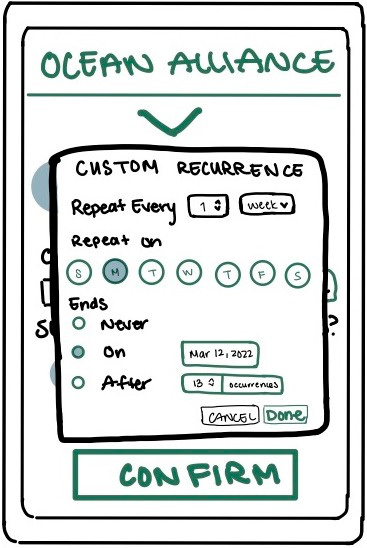 OCEAN ALLIANCE
CUSTOM RECURRENCE
Repeat Every 1 week
Repeat on
S M T W T F S
Ends
Never
On Mar 12, 2022
After 13 occurrences
CANCEL Done
CONFIRM